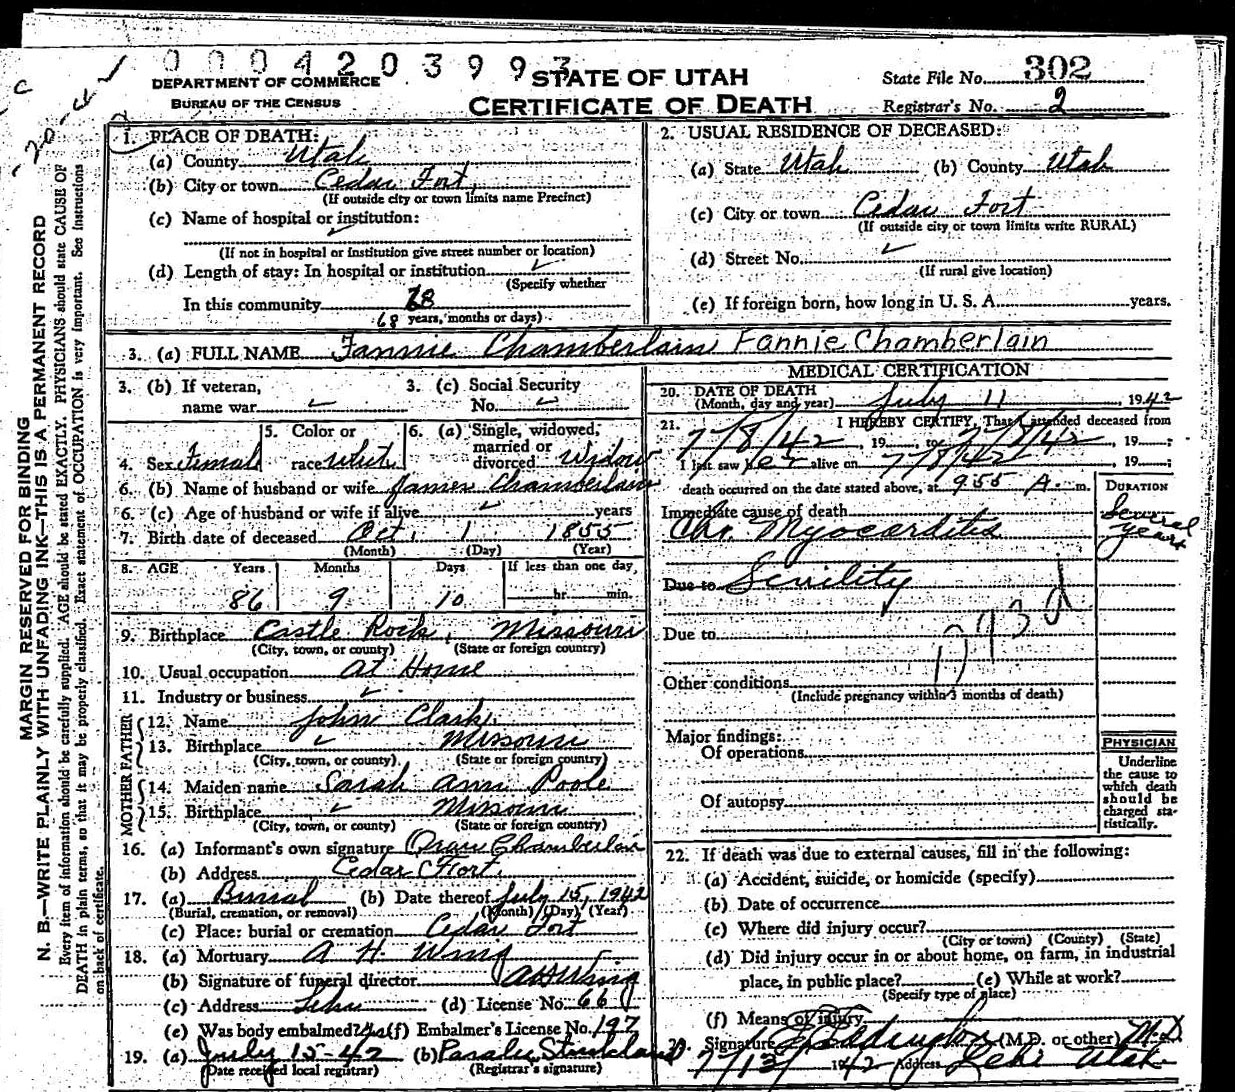 0004203993
DEPARTMENT OF COMMERCE
BUREAU OF THE CENSUS
STATE OF UTAH
CERTIFICATE OF DEATH
State File No. 302
Registrar's No. 2
MARGIN RESERVED FOR BINDING
N. B.—WRITE PLAINLY WITH UNFADING INK—THIS IS A PERMANENT RECORD
Every item of information should be carefully supplied. AGE should be stated EXACTLY. PHYSICIANS should state CAUSE OF
DEATH in plain terms, so that it may be properly classified. Exact statement of OCCUPATION is very important. See instructions
on back of certificate.
1. PLACE OF DEATH:
(a) County Utah
(b) City or town Cedar Fort,
(If outside city or town limits name Precinct)
(c) Name of hospital or institution:
(If not in hospital or institution give street number or location)
(d) Length of stay: In hospital or institution
(Specify whether
In this community 68
68 years, months or days)
2. USUAL RESIDENCE OF DECEASED:
(a) State Utah (b) County Utah
(c) City or town Cedar Fort
(If outside city or town limits write RURAL)
(d) Street No.
(If rural give location)
(e) If foreign born, how long in U. S. A. years.
3. (a) FULL NAME Fannie Chamberlain Fannie Chamberlain
3. (b) If veteran, name war
3. (c) Social Security No.
4. Sex Female
5. Color or race White
6. (a) Single, widowed, married or divorced Widow
6. (b) Name of husband or wife James Chamberlain
6. (c) Age of husband or wife if alive years
7. Birth date of deceased Oct. 1 1855
(Month) (Day) (Year)
8. AGE Years Months Days If less than one day
86 9 10 hr. min.
9. Birthplace Castle Rock, Missouri
(City, town, or county) (State or foreign country)
10. Usual occupation At Home
11. Industry or business
FATHER
12. Name John Clark
13. Birthplace Missouri
(City, town, or county) (State or foreign country)
MOTHER
14. Maiden name Sarah Ann Poole
15. Birthplace Missouri
(City, town, or county) (State or foreign country)
16. (a) Informant's own signature Chamberlain
(b) Address Cedar Fort.
17. (a) Burial (b) Date thereof July 15, 1942
(Burial, cremation, or removal) (Month) (Day) (Year)
(c) Place: burial or cremation Cedar Fort
18. (a) Mortuary A. H. Wing
(b) Signature of funeral director A H Wing
(c) Address Lehi (d) License No. 66
(e) Was body embalmed? Yes (f) Embalmer's License No. 197
19. (a) July 15-42 (b) Strickland
(Date received local registrar) (Registrar's signature)
MEDICAL CERTIFICATION
20. DATE OF DEATH
(Month, day and year) July 11, 1942
21. I HEREBY CERTIFY, That I attended deceased from
7/8/42, 19 to 7/8/42, 19;
I last saw her alive on 7/8/42, 19;
death occurred on the date stated above, at 955 A. m.
DURATION
Immediate cause of death
Chr. Myocarditis Several years
Due to Senility
Due to
93d
Other conditions
(Include pregnancy within 3 months of death)
Major findings:
Of operations
Of autopsy
PHYSICIAN
Underline the cause to which death should be charged statistically.
22. If death was due to external causes, fill in the following:
(a) Accident, suicide, or homicide (specify)
(b) Date of occurrence
(c) Where did injury occur?
(City or town) (County) (State)
(d) Did injury occur in or about home, on farm, in industrial
place, in public place? (e) While at work?
(Specify type of place)
(f) Means of injury
Signature (M.D. or other) M.D
7/13/1942 Address Lehi Utah